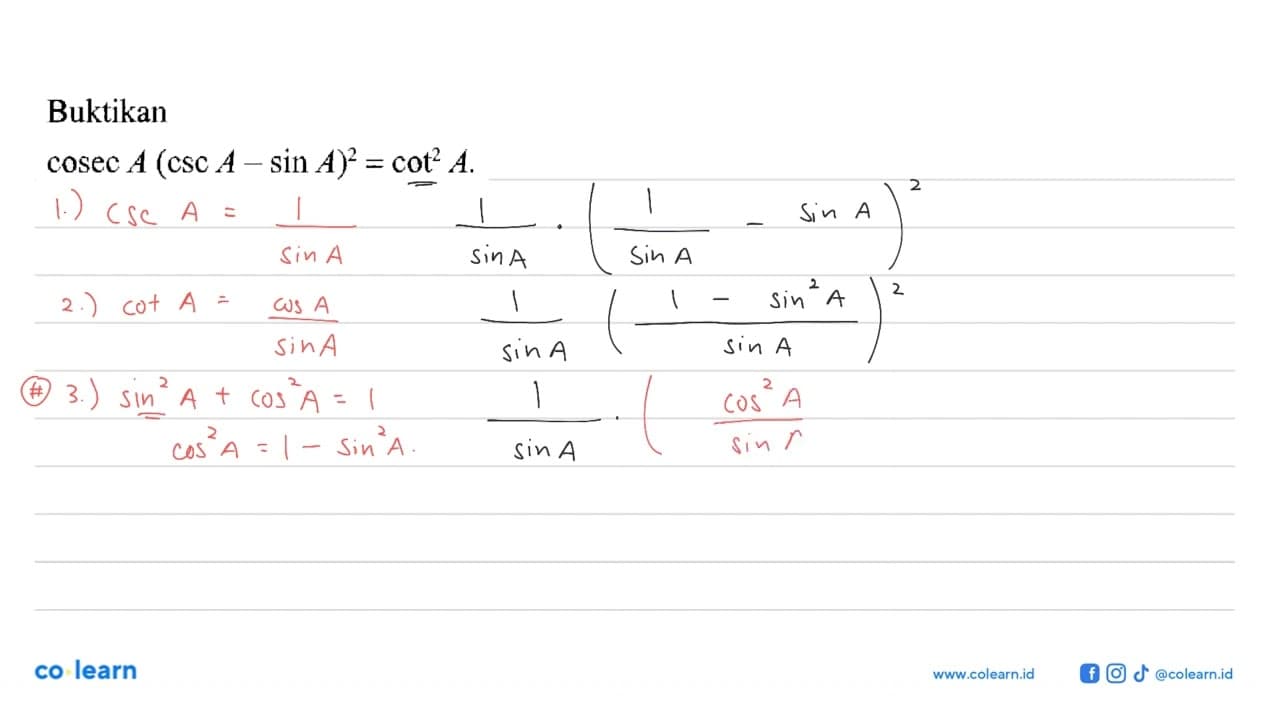 Buktikan
cosec A (csc A – sin A)² = cot² A.
1.) csc A = 1 / sin A
1 / sin A . ( 1 / sin A – sin A )²
2.) cot A = cos A / sin A
1 / sin A ( 1 – sin² A / sin A )²
# 3.) sin² A + cos² A = 1
cos² A = 1 – sin² A.
1 / sin A . ( cos² A / sin
co learn
www.colearn.id
@colearn.id